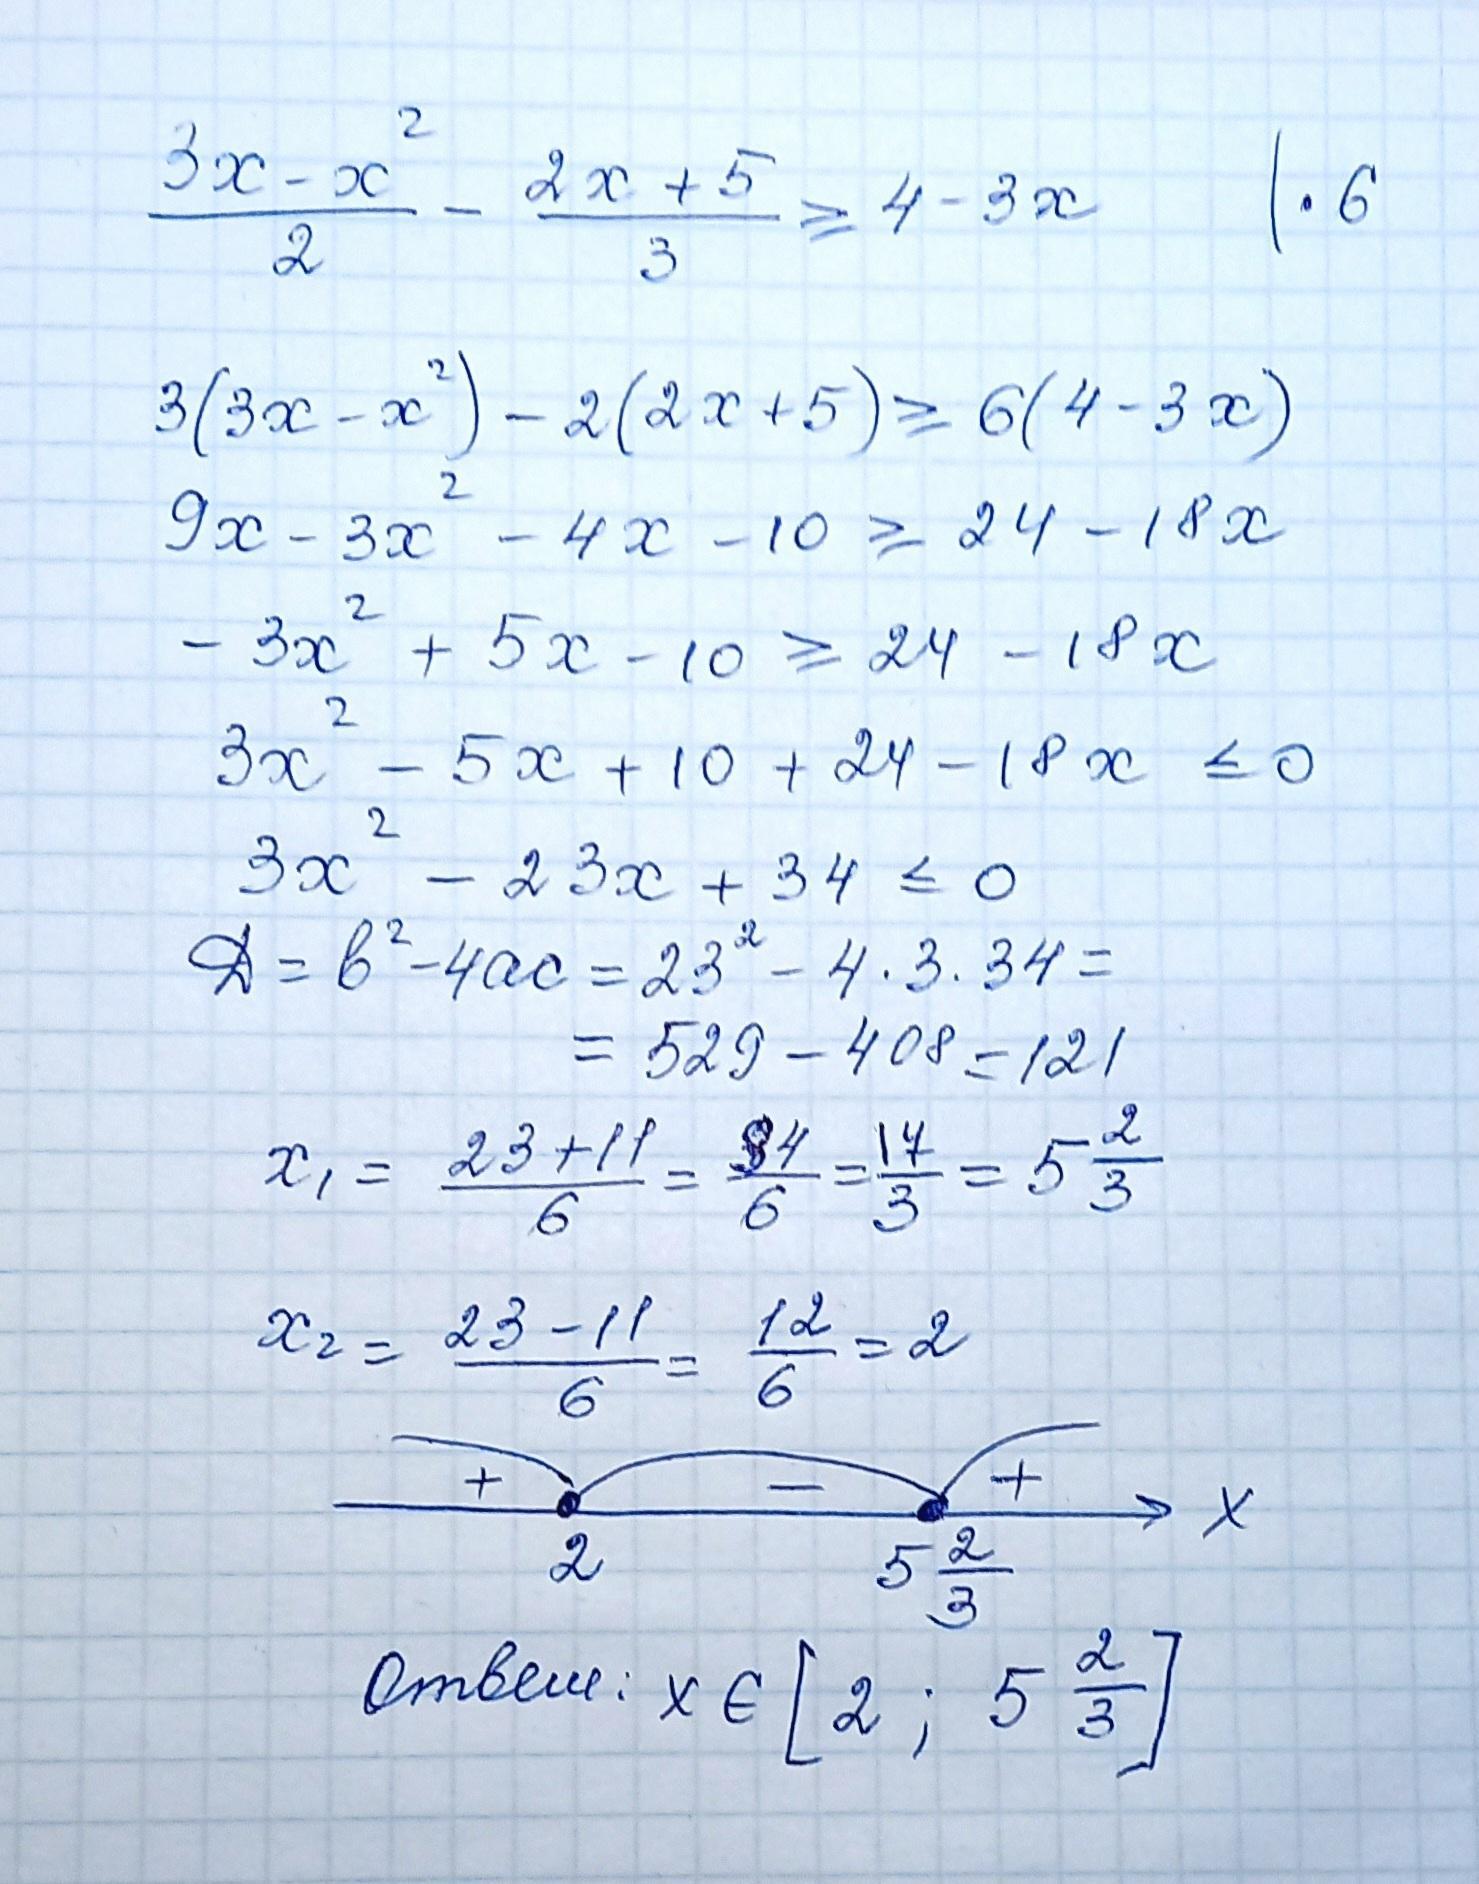 (3x - x²)/2 - (2x + 5)/3 ≥ 4 - 3x | · 6
3(3x - x²) - 2(2x + 5) ≥ 6(4 - 3x)
9x - 3x² - 4x - 10 ≥ 24 - 18x
- 3x² + 5x - 10 ≥ 24 - 18x
3x² - 5x + 10 + 24 - 18x ≤ 0
3x² - 23x + 34 ≤ 0
Д = b² - 4ac = 23² - 4 · 3 · 34 =
= 529 - 408 = 121
x₁ = (23 + 11)/6 = 34/6 = 17/3 = 5 2/3
x₂ = (23 - 11)/6 = 12/6 = 2
+ - + x
2 5 2/3
Ответ: x ∈ [2 ; 5 2/3]